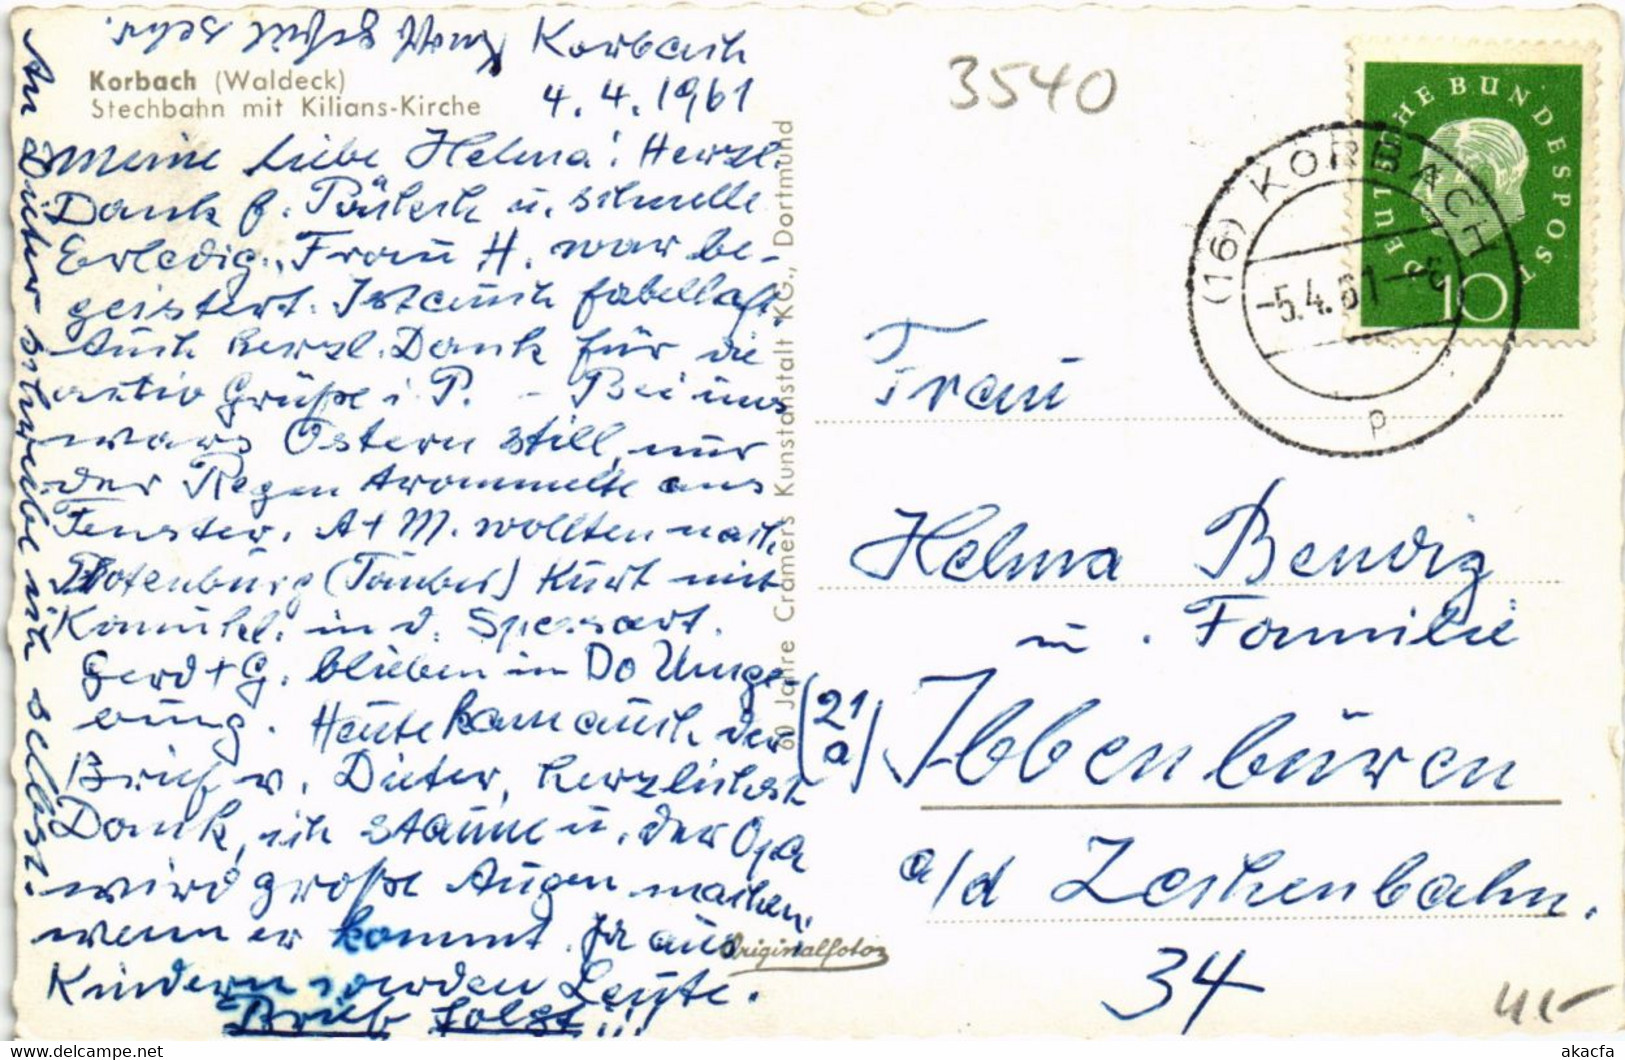 Korbach (Waldeck)
Stechbahn mit Kilians-Kirche
Korbach
4.4.1961
Meine liebe Helma! Herzl.
Dank f. u. schnelle
Erledig., Frau H. war be-
geistert. Ist auch fabelhaft.
Auch herzl. Dank für die
Grüße i. P. - Bei uns
wars Ostern still, nur
der Regen trommelte ans
Fenster. A + M. wollten nach
Rotenburg (Tauber) Kurt mit
in d. Spessart.
Gerd + G. blieben in Do Umge-
bung. Heute kam auch der
Brief v. Dieter, herzlichst
Dank, ich staune u. der Opa
wird große Augen machen,
wenn er kommt. Ja aus
Kindern werden Leute.
Brief folgt!!!
An Dieter schreibe ich selbst.
60 Jahre Cramers Kunstanstalt KG., Dortmund
Originalfoto
3540
DEUTSCHE BUNDESPOST
10
(16) KORBACH
-5.4.61
p
Frau
Helma Bendig
u. Familie
(21a) Ibbenbüren
a/d Zechenbahn.
34
akacfa